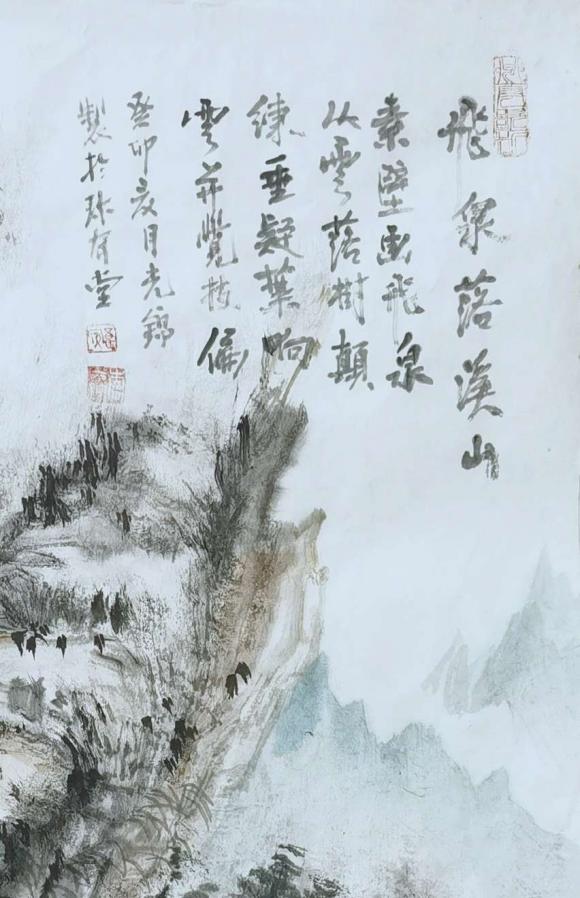 飛泉落溪山
素壁画飛泉
从雲落樹顛
練垂疑葉响
雲並覺枝偏
癸卯亥月光錦
製於珠有堂